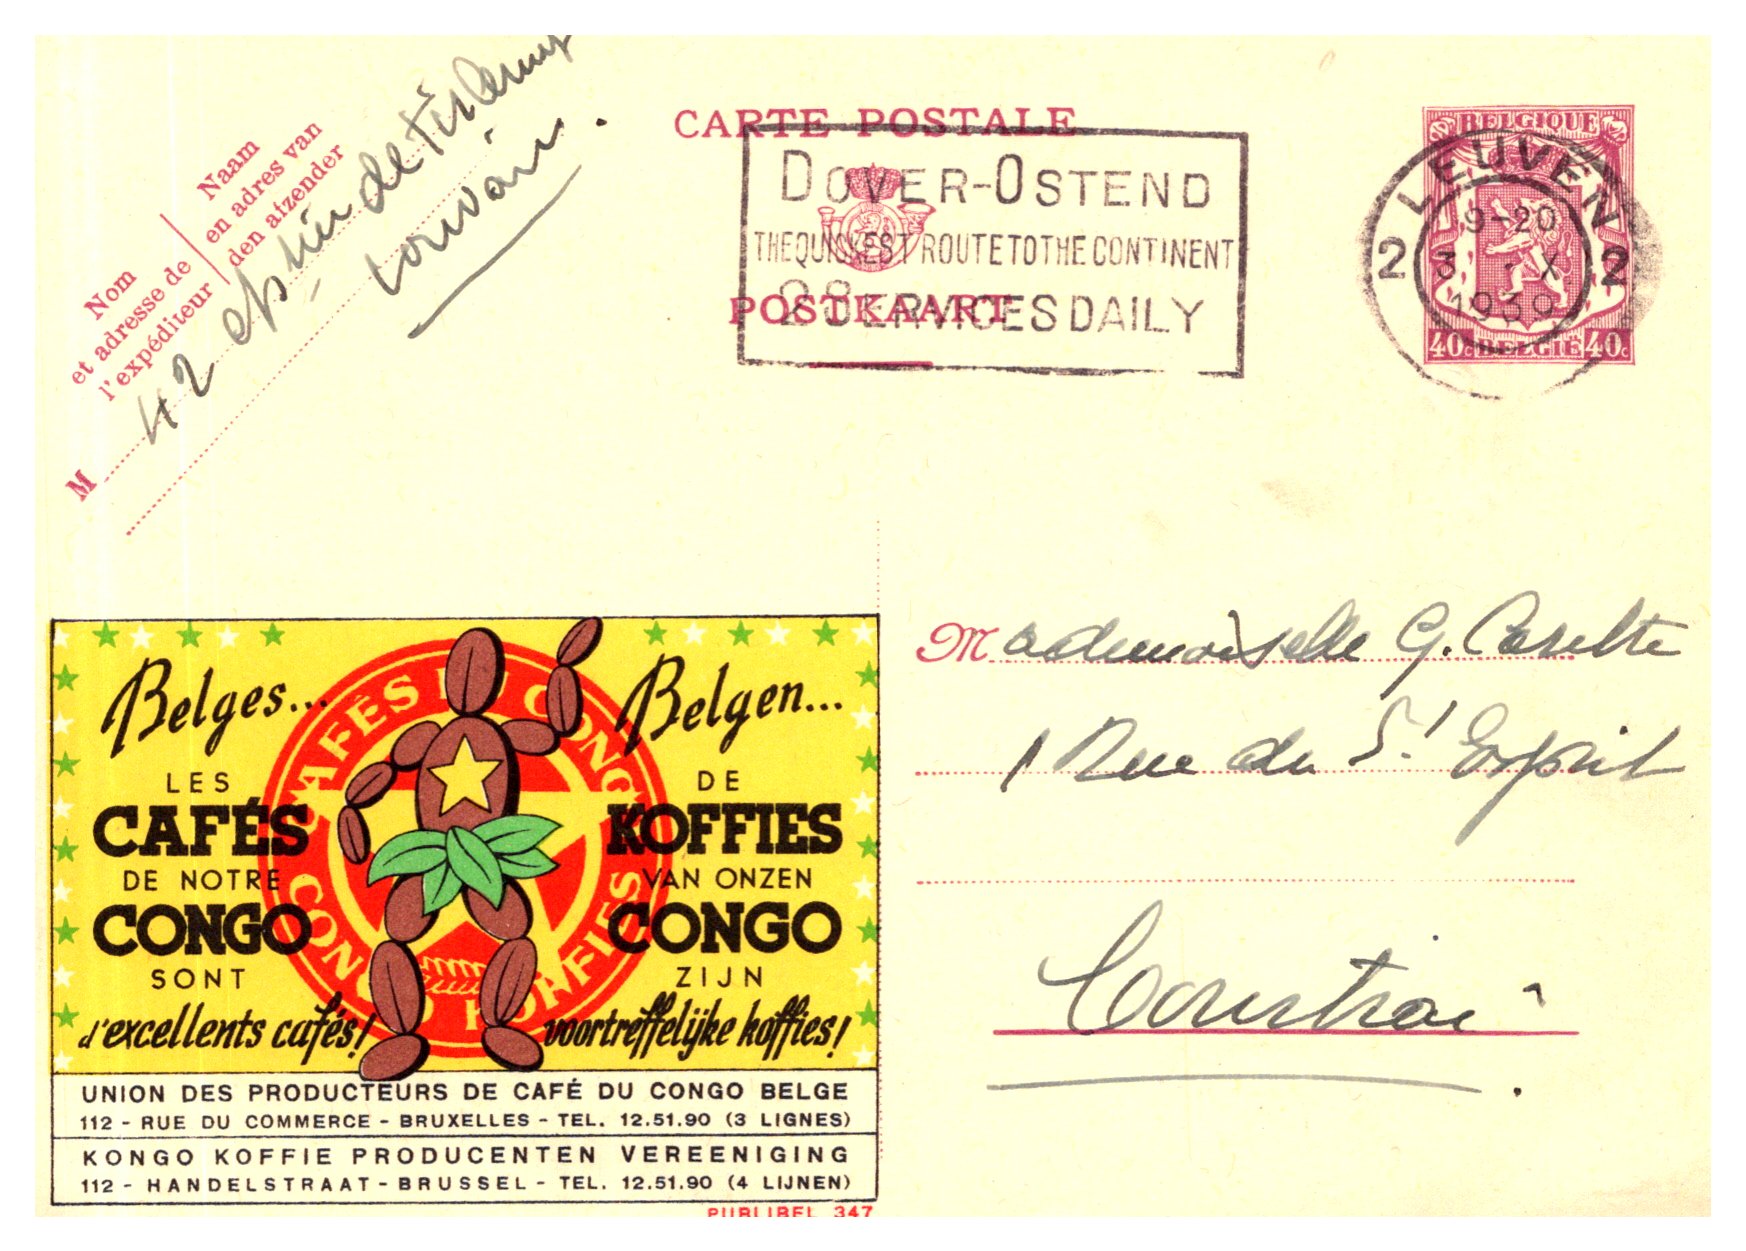 CARTE POSTALE
POSTKAART
DOVER-OSTEND
THE QUICKEST ROUTE TO THE CONTINENT
2 SERVICES DAILY
BELGIQUE
40c BELGIË 40c
LEUVEN
2 2
9-20
3 - X
1939
Nom
et adresse de
l'expéditeur
Naam
en adres van
den afzender
M 42
Louvain.
Mademoiselle G.
1 Rue du St Esprit
Courtrai.
Belges...
LES
CAFÉS
DE NOTRE
CONGO
SONT
d'excellents cafés!
CAFÉS DU CONGO
CONGO KOFFIES
Belgen...
DE
KOFFIES
VAN ONZEN
CONGO
ZIJN
voortreffelijke koffies!
UNION DES PRODUCTEURS DE CAFÉ DU CONGO BELGE
112 - RUE DU COMMERCE - BRUXELLES - TEL. 12.51.90 (3 LIGNES)
KONGO KOFFIE PRODUCENTEN VEREENIGING
112 - HANDELSTRAAT - BRUSSEL - TEL. 12.51.90 (4 LIJNEN)
PUBLIBEL 347